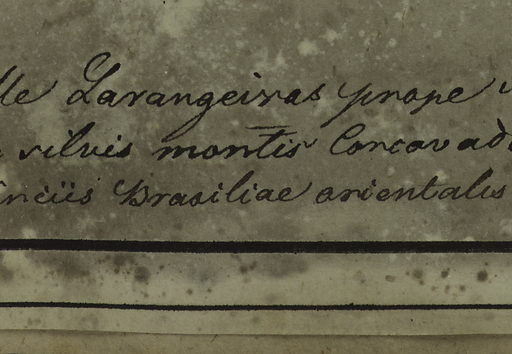 lle Larangeiras prope
silvis montis Corcovad
inciis Brasiliae orientalis